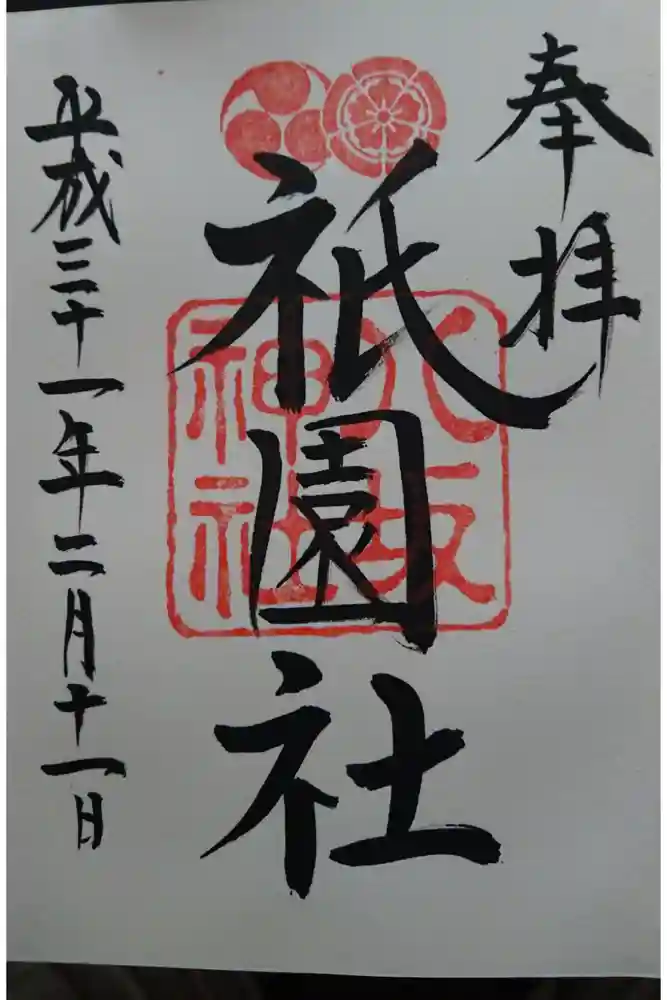 奉拝
祇園社
八坂
神社
平成三十一年二月十一日